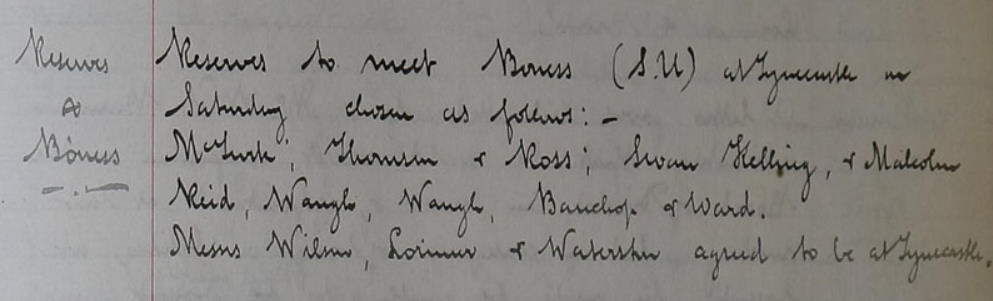 Reserves
v
Bo'ness
Reserves to meet Boness (S.U) at Tynecastle on
Saturday chosen as follows: -
Thomson & Ross; Swan Helling, & Malcolm
Reid, Waugh, Waugh, Bauchop & Ward.
Messrs Wilson, Lorimer & Waterston agreed to be at Tynecastle.